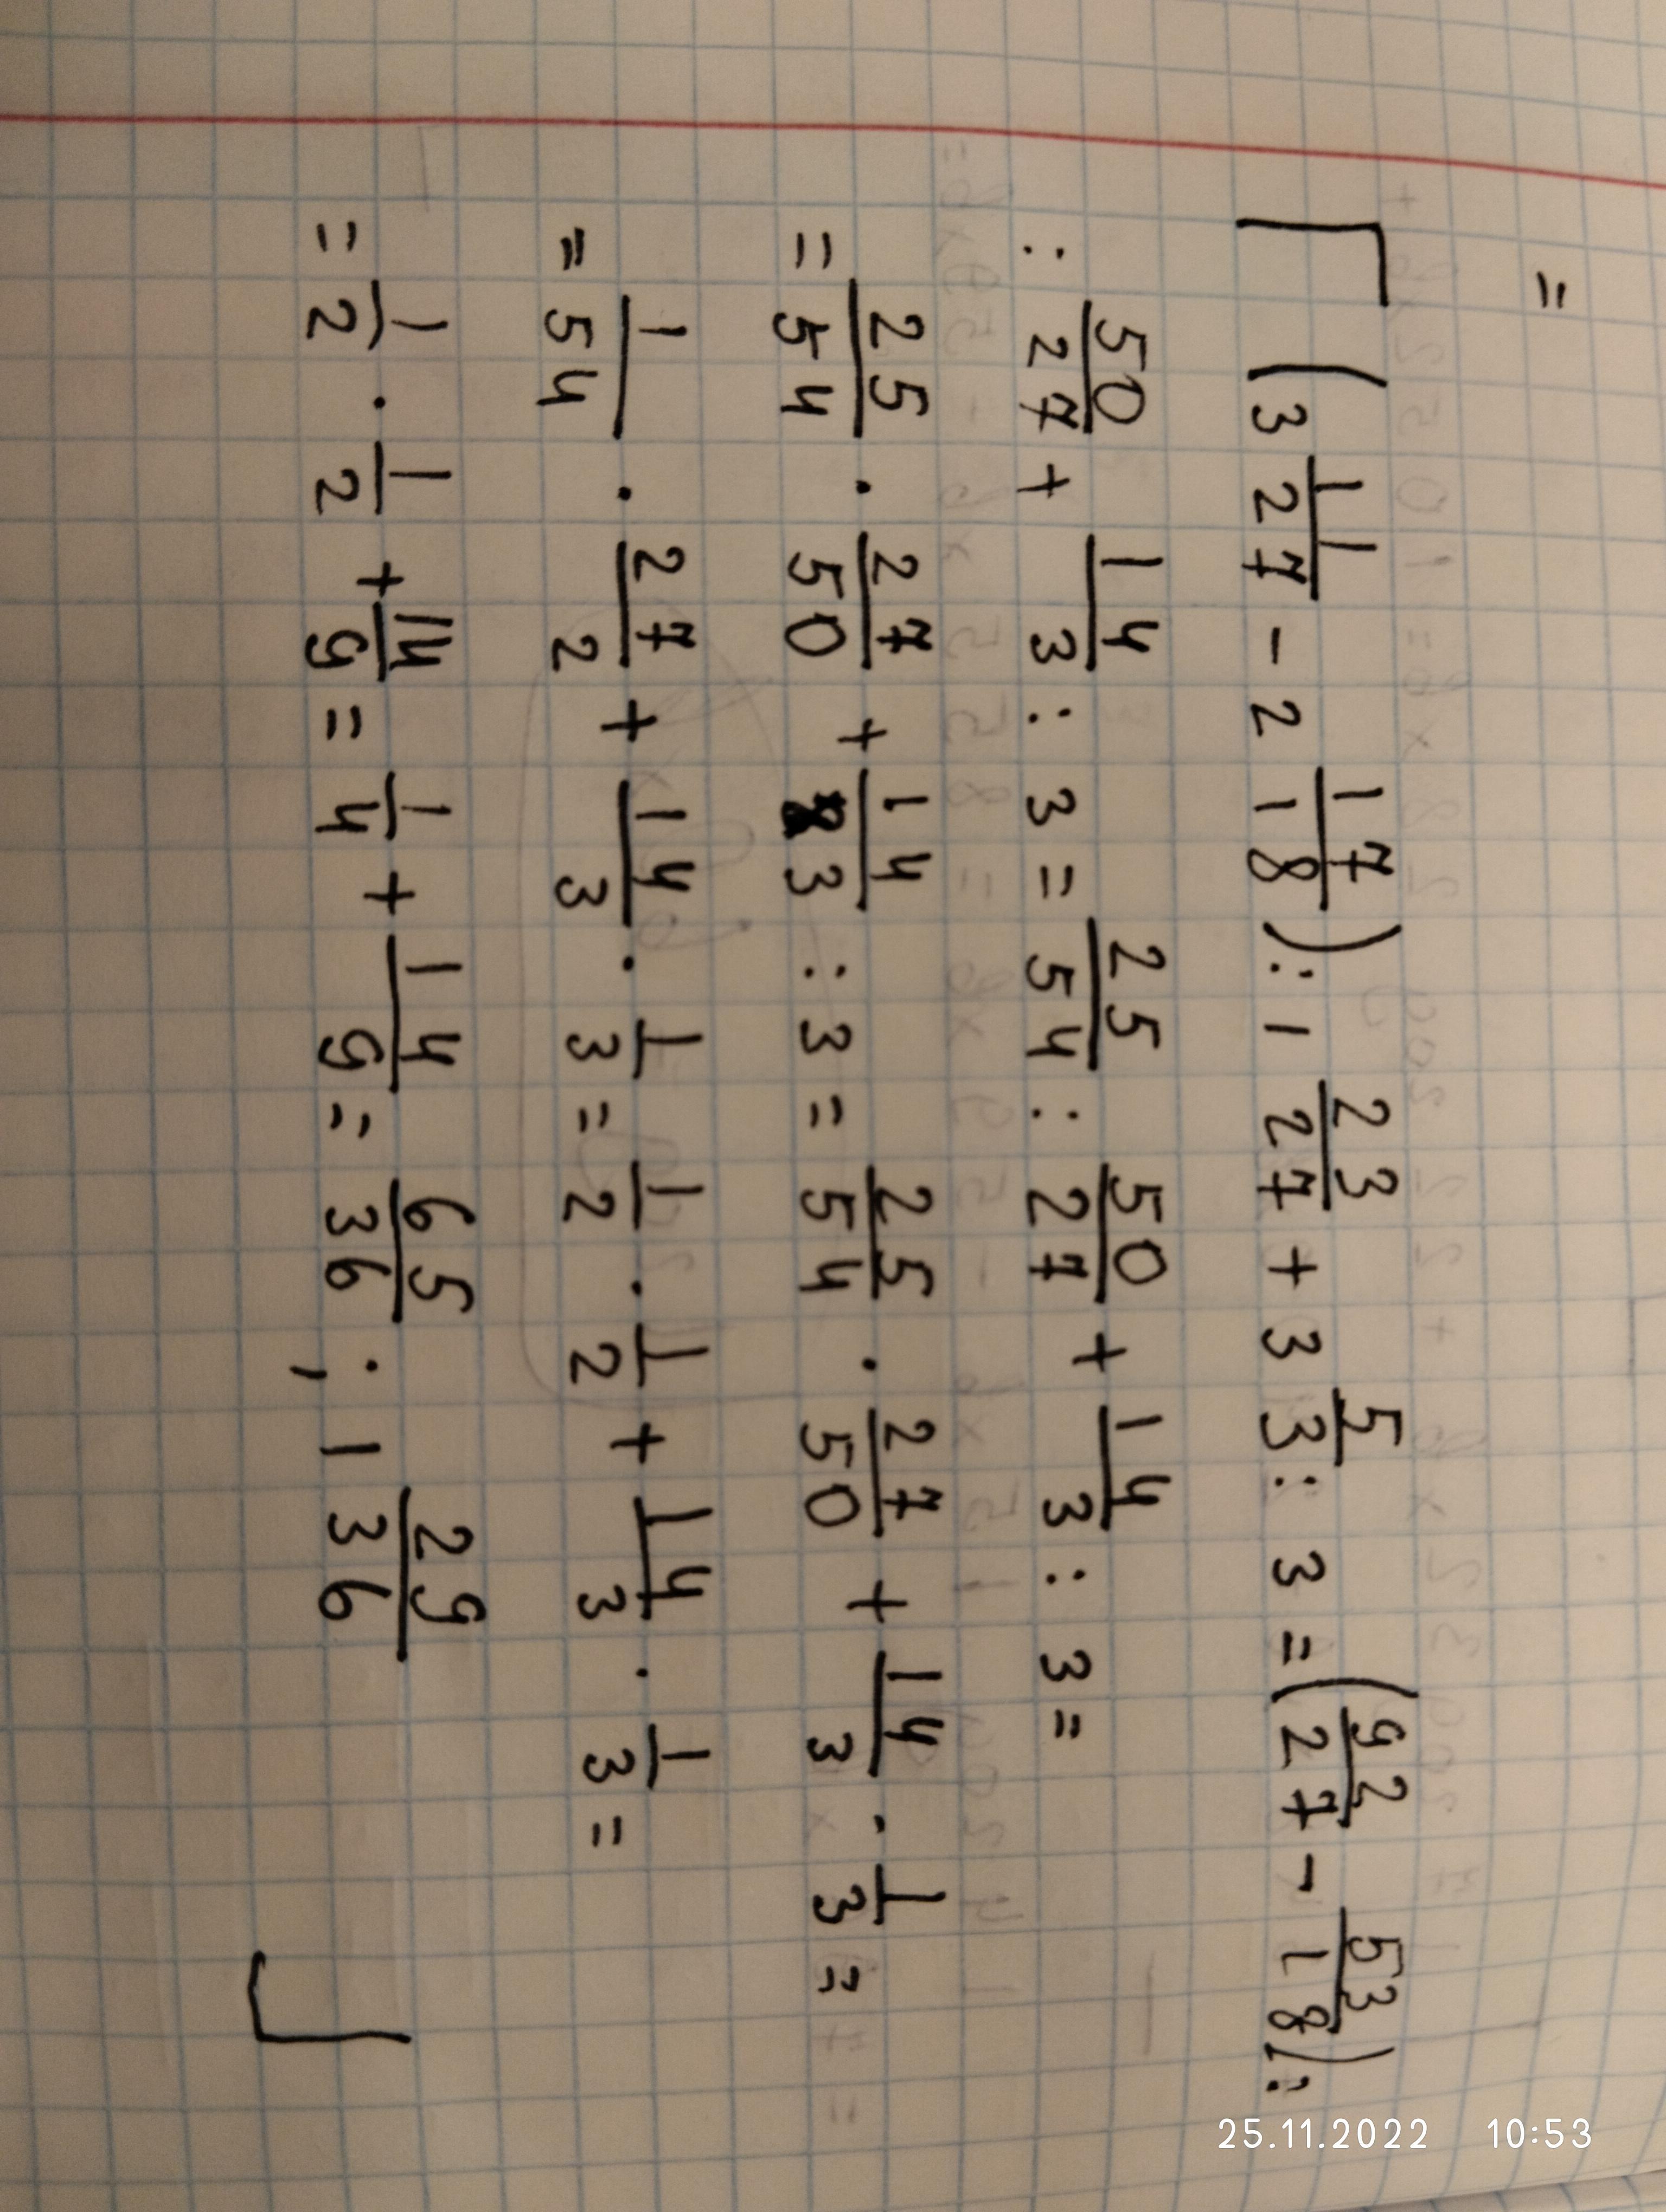 =
(3 11/27 - 2 17/18) : 1 23/27 + 3 5/3 : 3 = (92/27 - 53/18) :
: 50/27 + 14/3 : 3 = 25/54 : 50/27 + 14/3 : 3 =
= 25/54 · 27/50 + 14/3 : 3 = 25/54 · 27/50 + 14/3 · 1/3 =
= 1/54 · 27/2 + 14/3 · 1/3 = 1/2 · 1/2 + 14/3 · 1/3 =
= 1/2 · 1/2 + 14/9 = 1/4 + 14/9 = 65/36 ; 1 29/36
25.11.2022 10:53